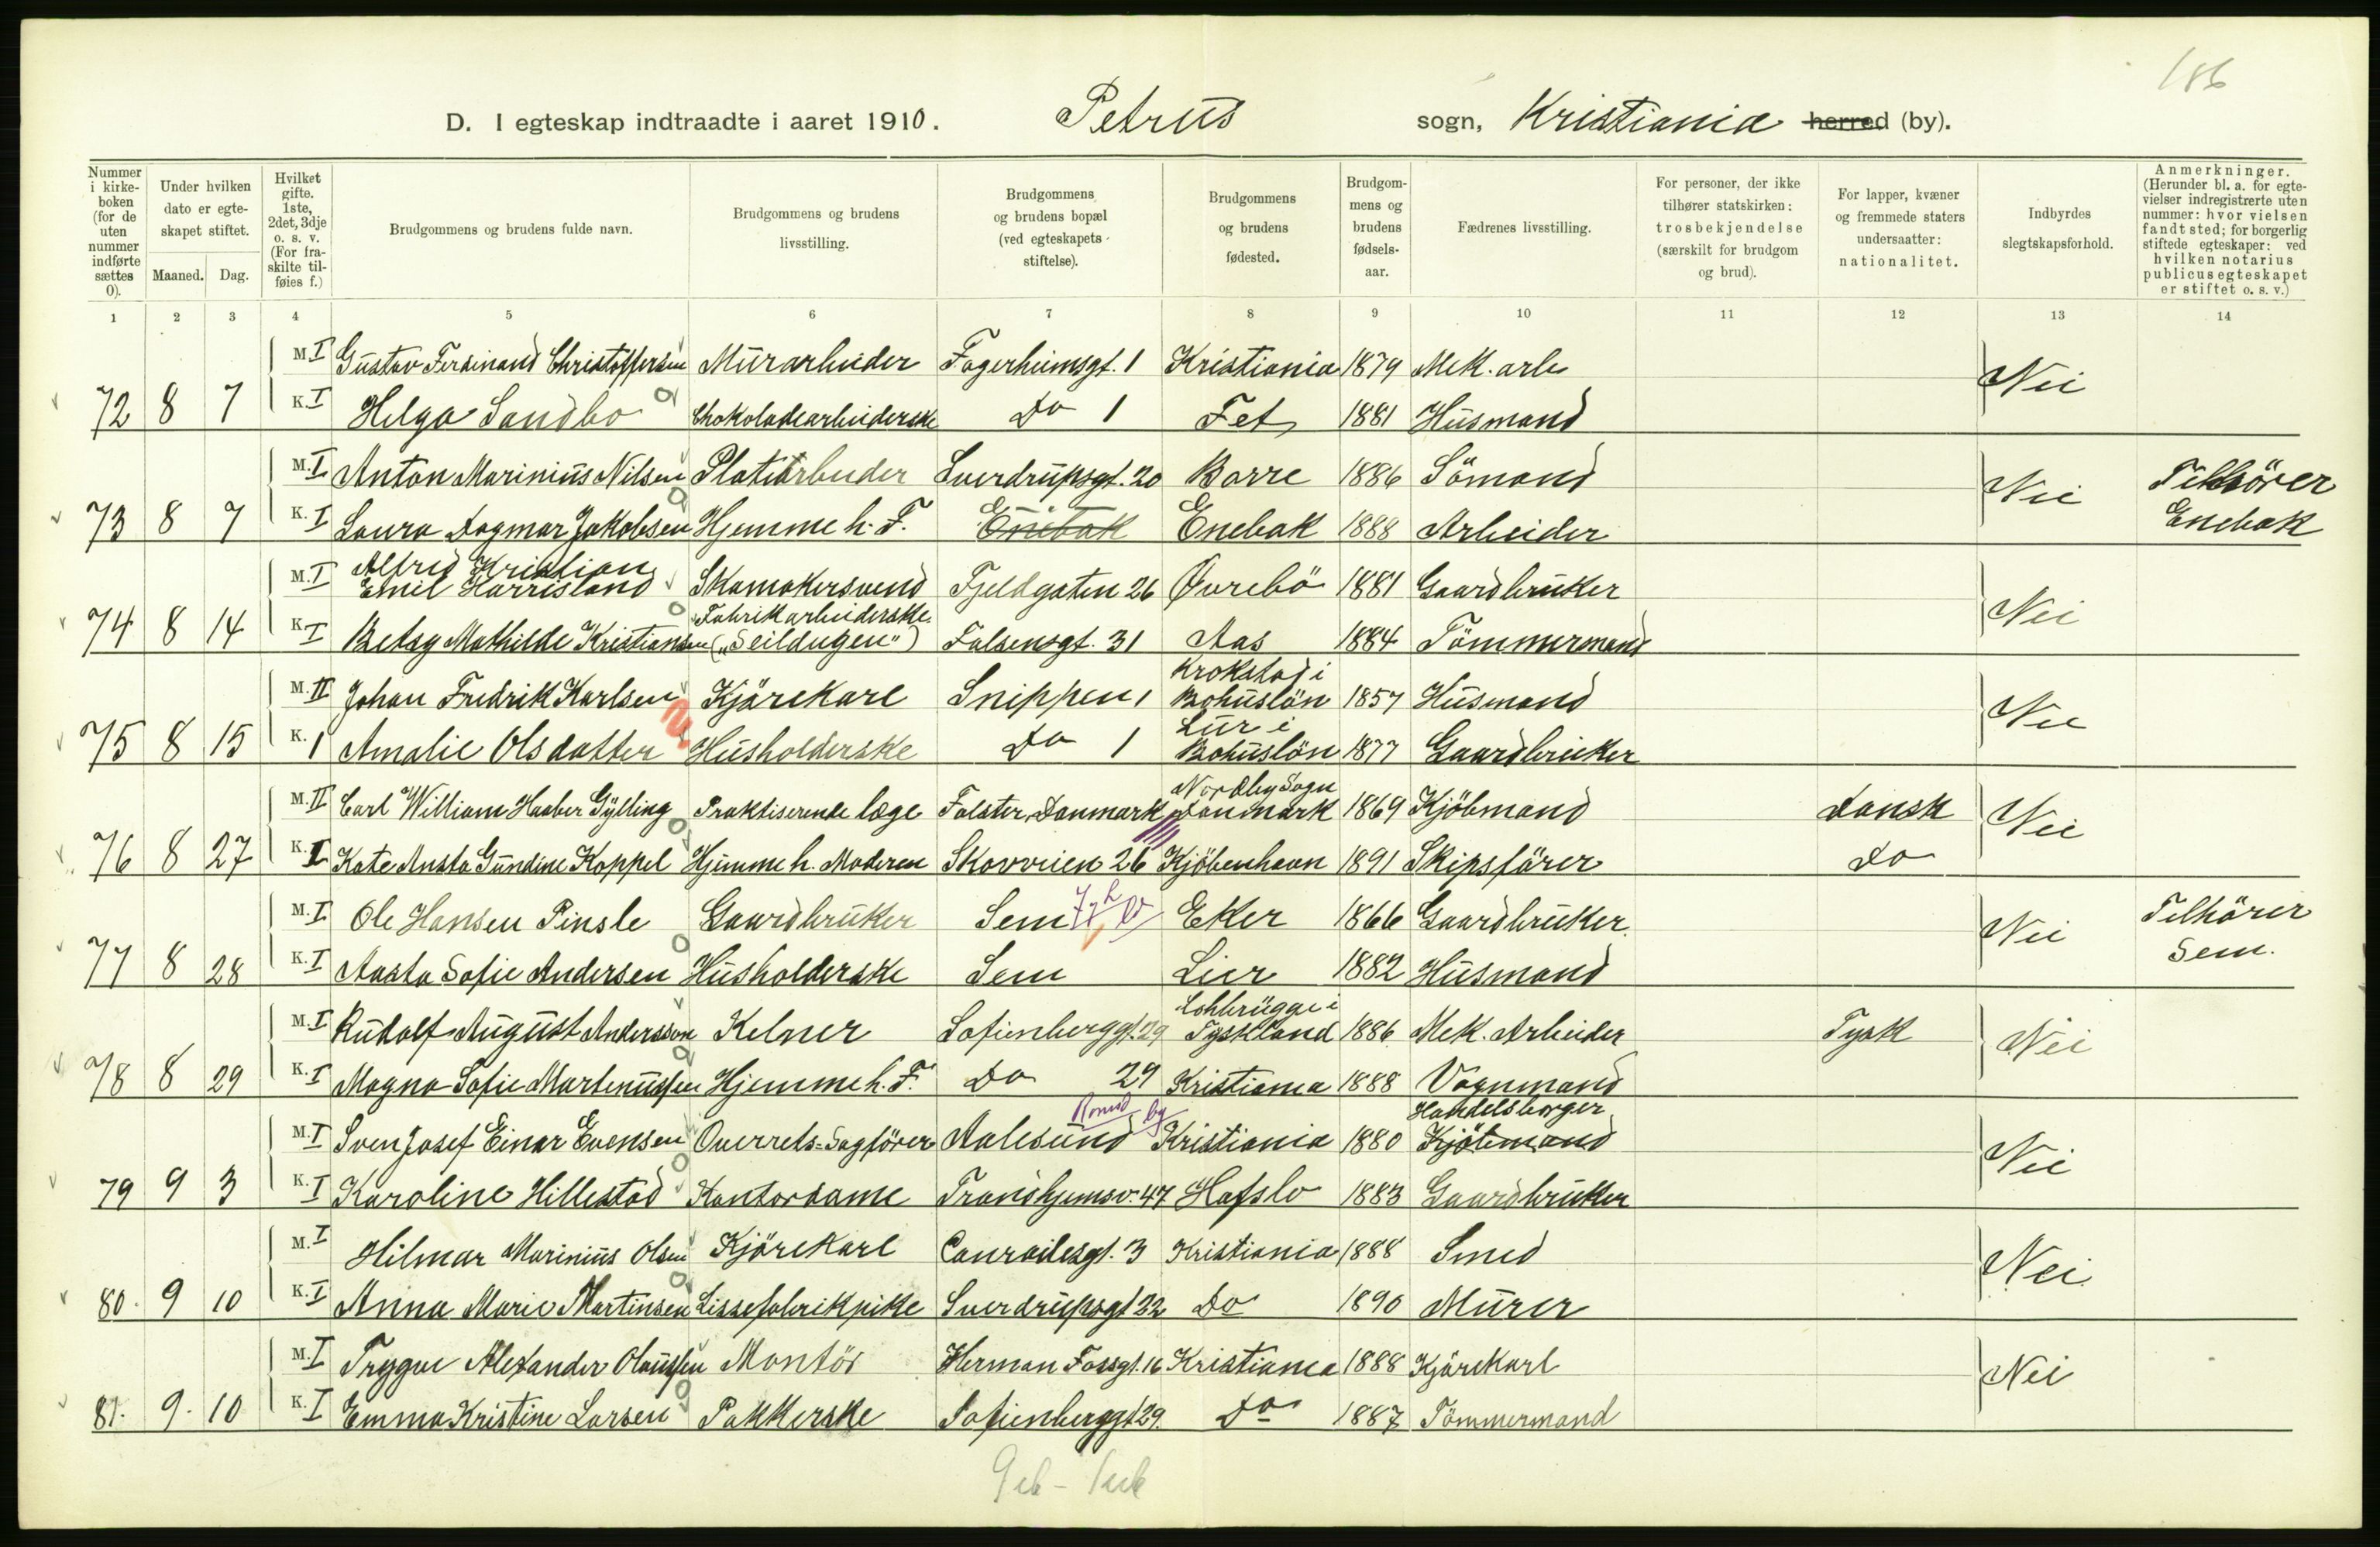 186
D. I egteskap indtraadte i aaret 1910. Petrus sogn, Kristiania herred (by).
Nummer i kirke- boken (for de uten nummer indførte sættes 0). | Under hvilken dato er egte- skapet stiftet. Maaned. Dag. | Hvilket gifte. 1ste, 2det, 3dje o. s. v. (For fra- skilte til- føies f.) | Brudgommens og brudens fulde navn. | Brudgommens og brudens livsstilling. | Brudgommens og brudens bopæl (ved egteskapets stiftelse). | Brudgommens og brudens fødested. | Brudgom- mens og brudens fødsels- aar. | Fædrenes livsstilling. | For personer, der ikke tilhører statskirken: trosbekjendelse (særskilt for brudgom og brud). | For lapper, kvæner og fremmede staters undersaatter: nationalitet. | Indbyrdes slegtskapsforhold. | Anmerkninger. (Herunder bl. a. for egte- vielser indregistrerte uten nummer: hvor vielsen fandt sted; for borgerlig stiftede egteskaper: ved hvilken notarius publicus egteskapet er stiftet o. s. v.)
1 2 3 4 5 6 7 8 9 10 11 12 13 14
M. I Gustav Ferdinand Christoffersen Murarbeider Fagerheimsgt. 1 Kristiania 1879 Mek. arb Nei
72 8 7 K. I Helga Sandbo Chokoladearbeiderske Do 1 Fet 1881 Husmand
M. I Anton Marinius Nilsen Platearbeider Sverdrupsgt. 20 Borre 1886 Sömand Nei Tilhörer
73 8 7 K. I Laura Dagmar Jakobsen Hjemme h. F. Enebak Enebak 1888 Arbeider Enebak
M. I Alfrid Kristian Emil Harrisland Skomakersvend Fjeldgaten 26 Øvrebö 1881 Gaardbruker Nei
74 8 14 K. I Betsy Mathilde Kristiansen Fabrikarbeiderske („Seildugen") Falsensgt. 31 Aas 1884 Tömmermand
M. II Johan Fredrik Karlsen Kjörekarl Snippen 1 Krokstad i Bohuslän 1857 Husmand Nei
75 8 15 K. 1 Amalie Olsdatter Husholderske Do 1 Lur i Bohuslän 1877 Gaardbruker
M. II Carl William Haaber Gylling Praktiserende læge Falster, Danmark Nordby Sogn Danmark 1869 Kjöbmand Dansk Nei
76 8 27 K. I Kate Ansta Gundine Koppel Hjemme h. Moderen Skovveien 26 Kjöbenhavn 1891 Skipsförer Do
M. I Ole Hansen Pinsle Gaardbruker Sem Eker 1866 Gaardbruker. Nei Tilhörer
77 8 28 K. I Aasta Sofie Andersen Husholderske Sem Lier 1882 Husmand Sem.
M. I Rudolf August Andersson Kelner Sofienberggt. 29 Lohbrügge i Tyskland 1886 Mek. Arbeider Tysk Nei
78 8 29 K. I Magna Sofie Martinussen Hjemme h. F. Do 29 Kristiania 1888 Vognmand
M. I Sven Josef Einar Evensen Overrets-Sagförer Aalesund Kristiania 1880 Handelsborger Kjöbmand Nei
79 9 3 K. I Karoline Hillestad Kontordame Trondhjemsv. 47 Hafslo 1883 Gaardbruker
M. I Hilmar Marinius Olsen Kjörekarl Conradiesgt. 3 Kristiania 1888 Smed Nei
80. 9 10 K. I Anna Marie Martinsen Lissefabrikpike Sverdrupsgt 22 Do 1890 Murer
M. I Trygve Alexander Olaussen Montör Herman Fossgt. 16 Kristiania 1888 Kjörekarl Nei
81. 9. 10 K. I Emma Kristine Larsen Pakkerske Sofienberggt 29. Do 1887 Tömmermand